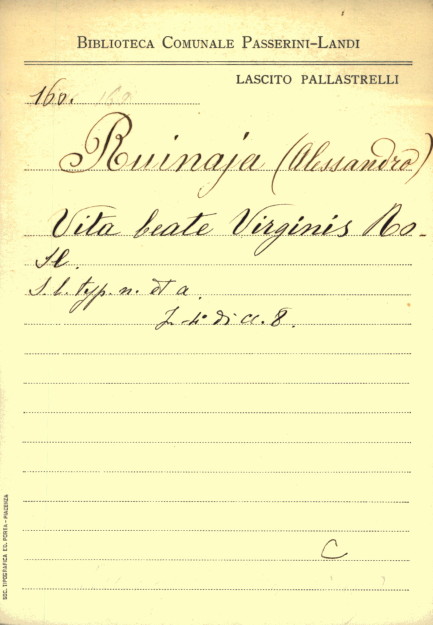 BIBLIOTECA COMUNALE PASSERINI-LANDI
LASCITO PALLASTRELLI
160. 160
Ruinaja (Alessandro)
Vita beate Virginis Ro-
se.
S. l. typ. n. et a.
In 4° di cc. 8.
C
SOC. TIPOGRAFICA ED. PORTA - PIACENZA